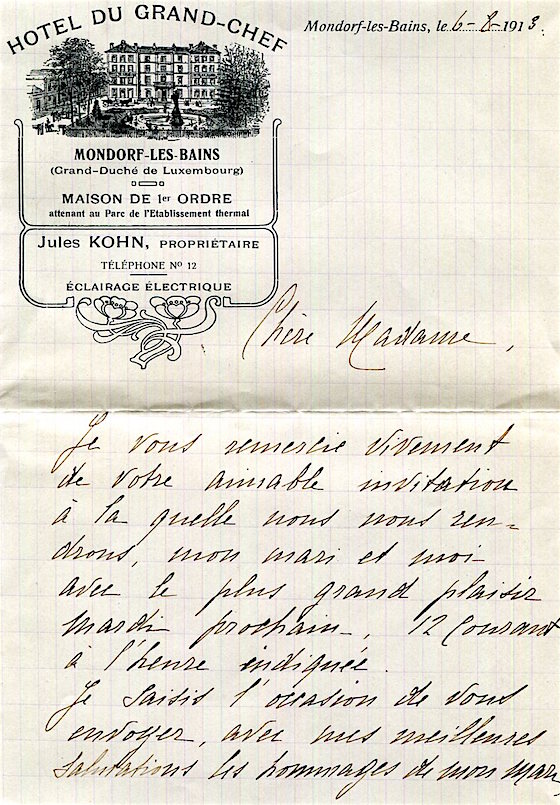 HOTEL DU GRAND-CHEF
Mondorf-les-Bains, le 6-8-1913.
MONDORF-LES-BAINS
(Grand-Duché de Luxembourg)
MAISON DE 1er ORDRE
attenant au Parc de l'Etablissement thermal
Jules KOHN, PROPRIÉTAIRE
TÉLÉPHONE No 12
ÉCLAIRAGE ÉLECTRIQUE
Chère Madame,
Je vous remercie vivement
de votre aimable invitation
à la quelle nous nous ren-
drons, mon mari et moi
avec le plus grand plaisir
Mardi prochain, 12 Courant
à l'heure indiquée.
Je saisis l'occasion de vous
envoyer, avec mes meilleures
salutations les hommages de mon mari